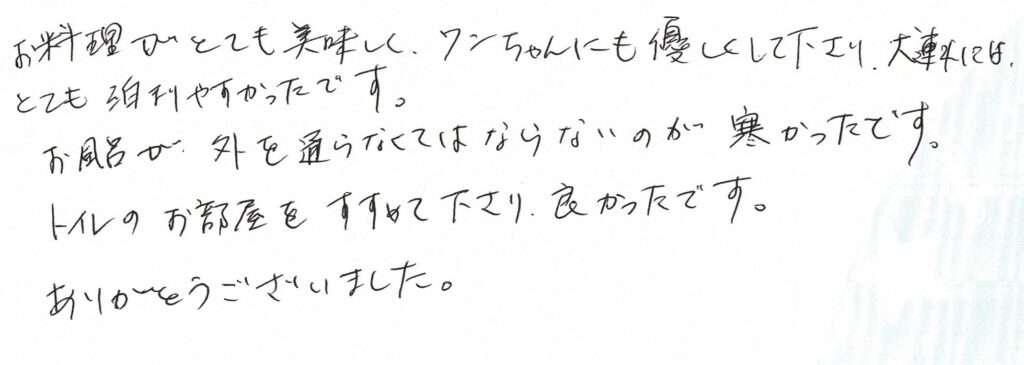 お料理がとても美味しく、ワンちゃんにも優しくして下さり、犬連れには、
とても泊りやすかったです。
お風呂が、外を通らなくてはならないのが寒かったです。
トイレのお部屋をすすめて下さり、良かったです。
ありがとうございました。